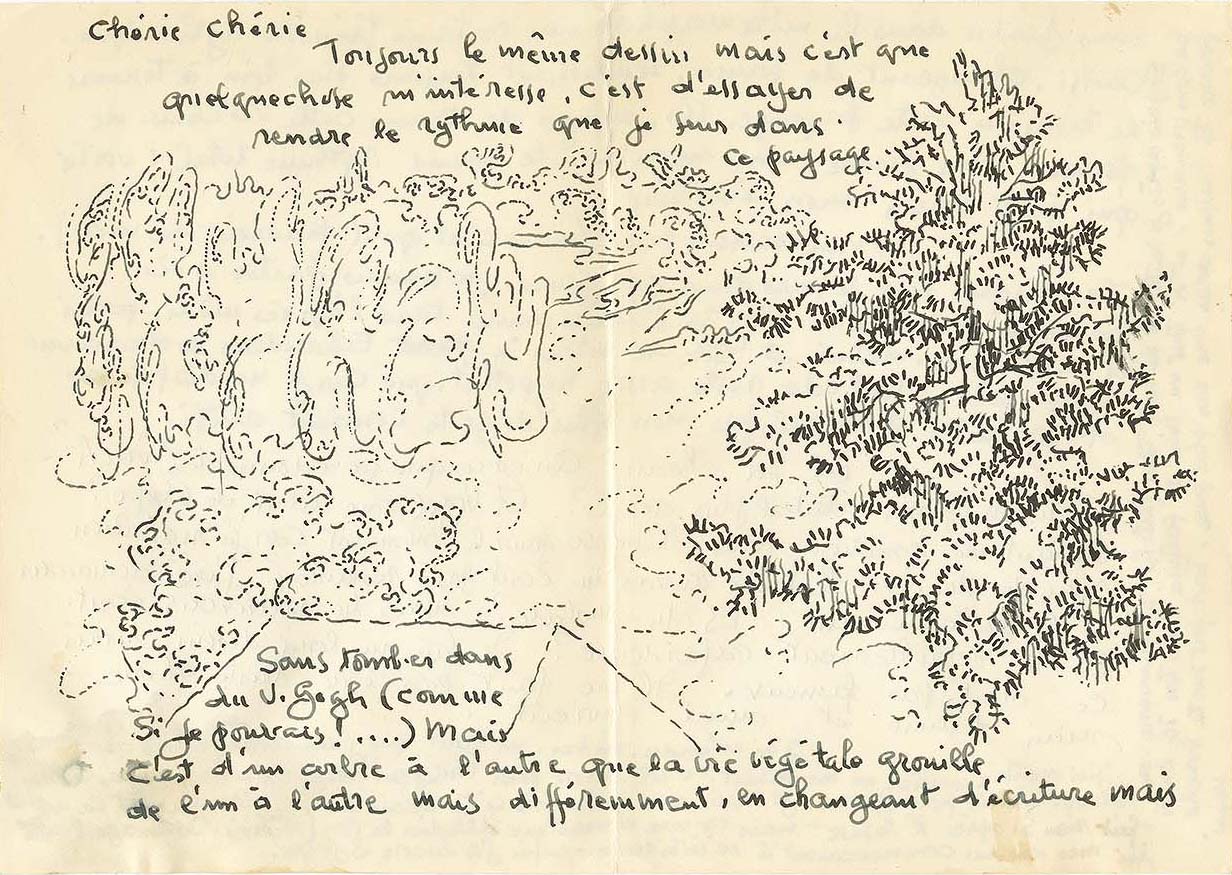 Chérie Chérie
Toujours le même dessin mais c'est que
quelquechose m'intéresse, c'est d'essayer de
rendre le rythme que je sens dans
ce paysage
Sans tomber dans
du V. Gogh (comme
Si je pouvais !....) Mais
C'est d'un arbre à l'autre que la vie végétale grouille
de l'un à l'autre mais différemment, en changeant d'écriture mais